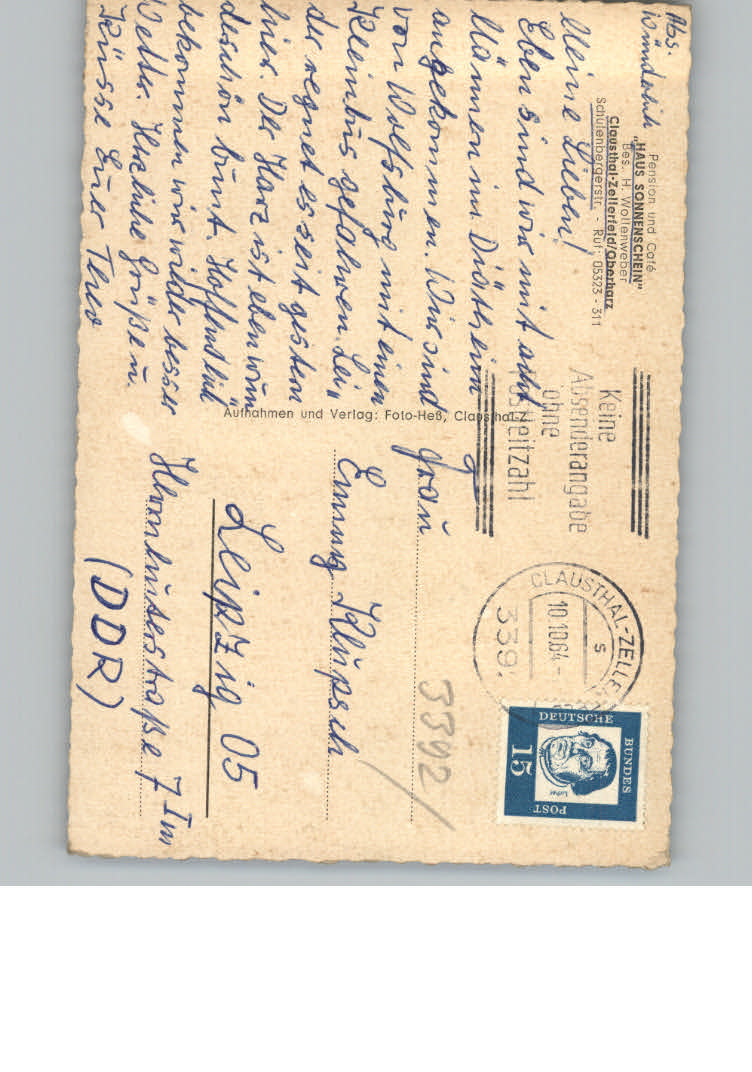 Abs.
Wünderlich
Pension und Café
„HAUS SONNENSCHEIN"
Bes. H. Wollenweber
Clausthal-Zellerfeld/Oberharz
Schulenbergerstr. - Ruf: 05323 - 311
Meine Lieben!
Eben sind wir mit acht
Männern im Diätheim
angekommen. Wir sind
von Wolfsburg mit einem
Kleinbus gefahren. Lei„
der regnet es seit gestern
hier. Der Harz ist eben wun
derschön bunt. Hoffentlich
bekommen wir wieder besser
Wetter. Herzliche Grüße u.
Küsse Euer Theo
Aufnahmen und Verlag: Foto-Heß, Clausthal-Z.
Keine
Absenderangabe
ohne
Postleitzahl
CLAUSTHAL-ZELLE
10.10.64-
s
339
DEUTSCHE
BUNDES
POST
15
Luther
3392
Frau
Emmy Klupsch
Leipzig 05
7 Im
(DDR)